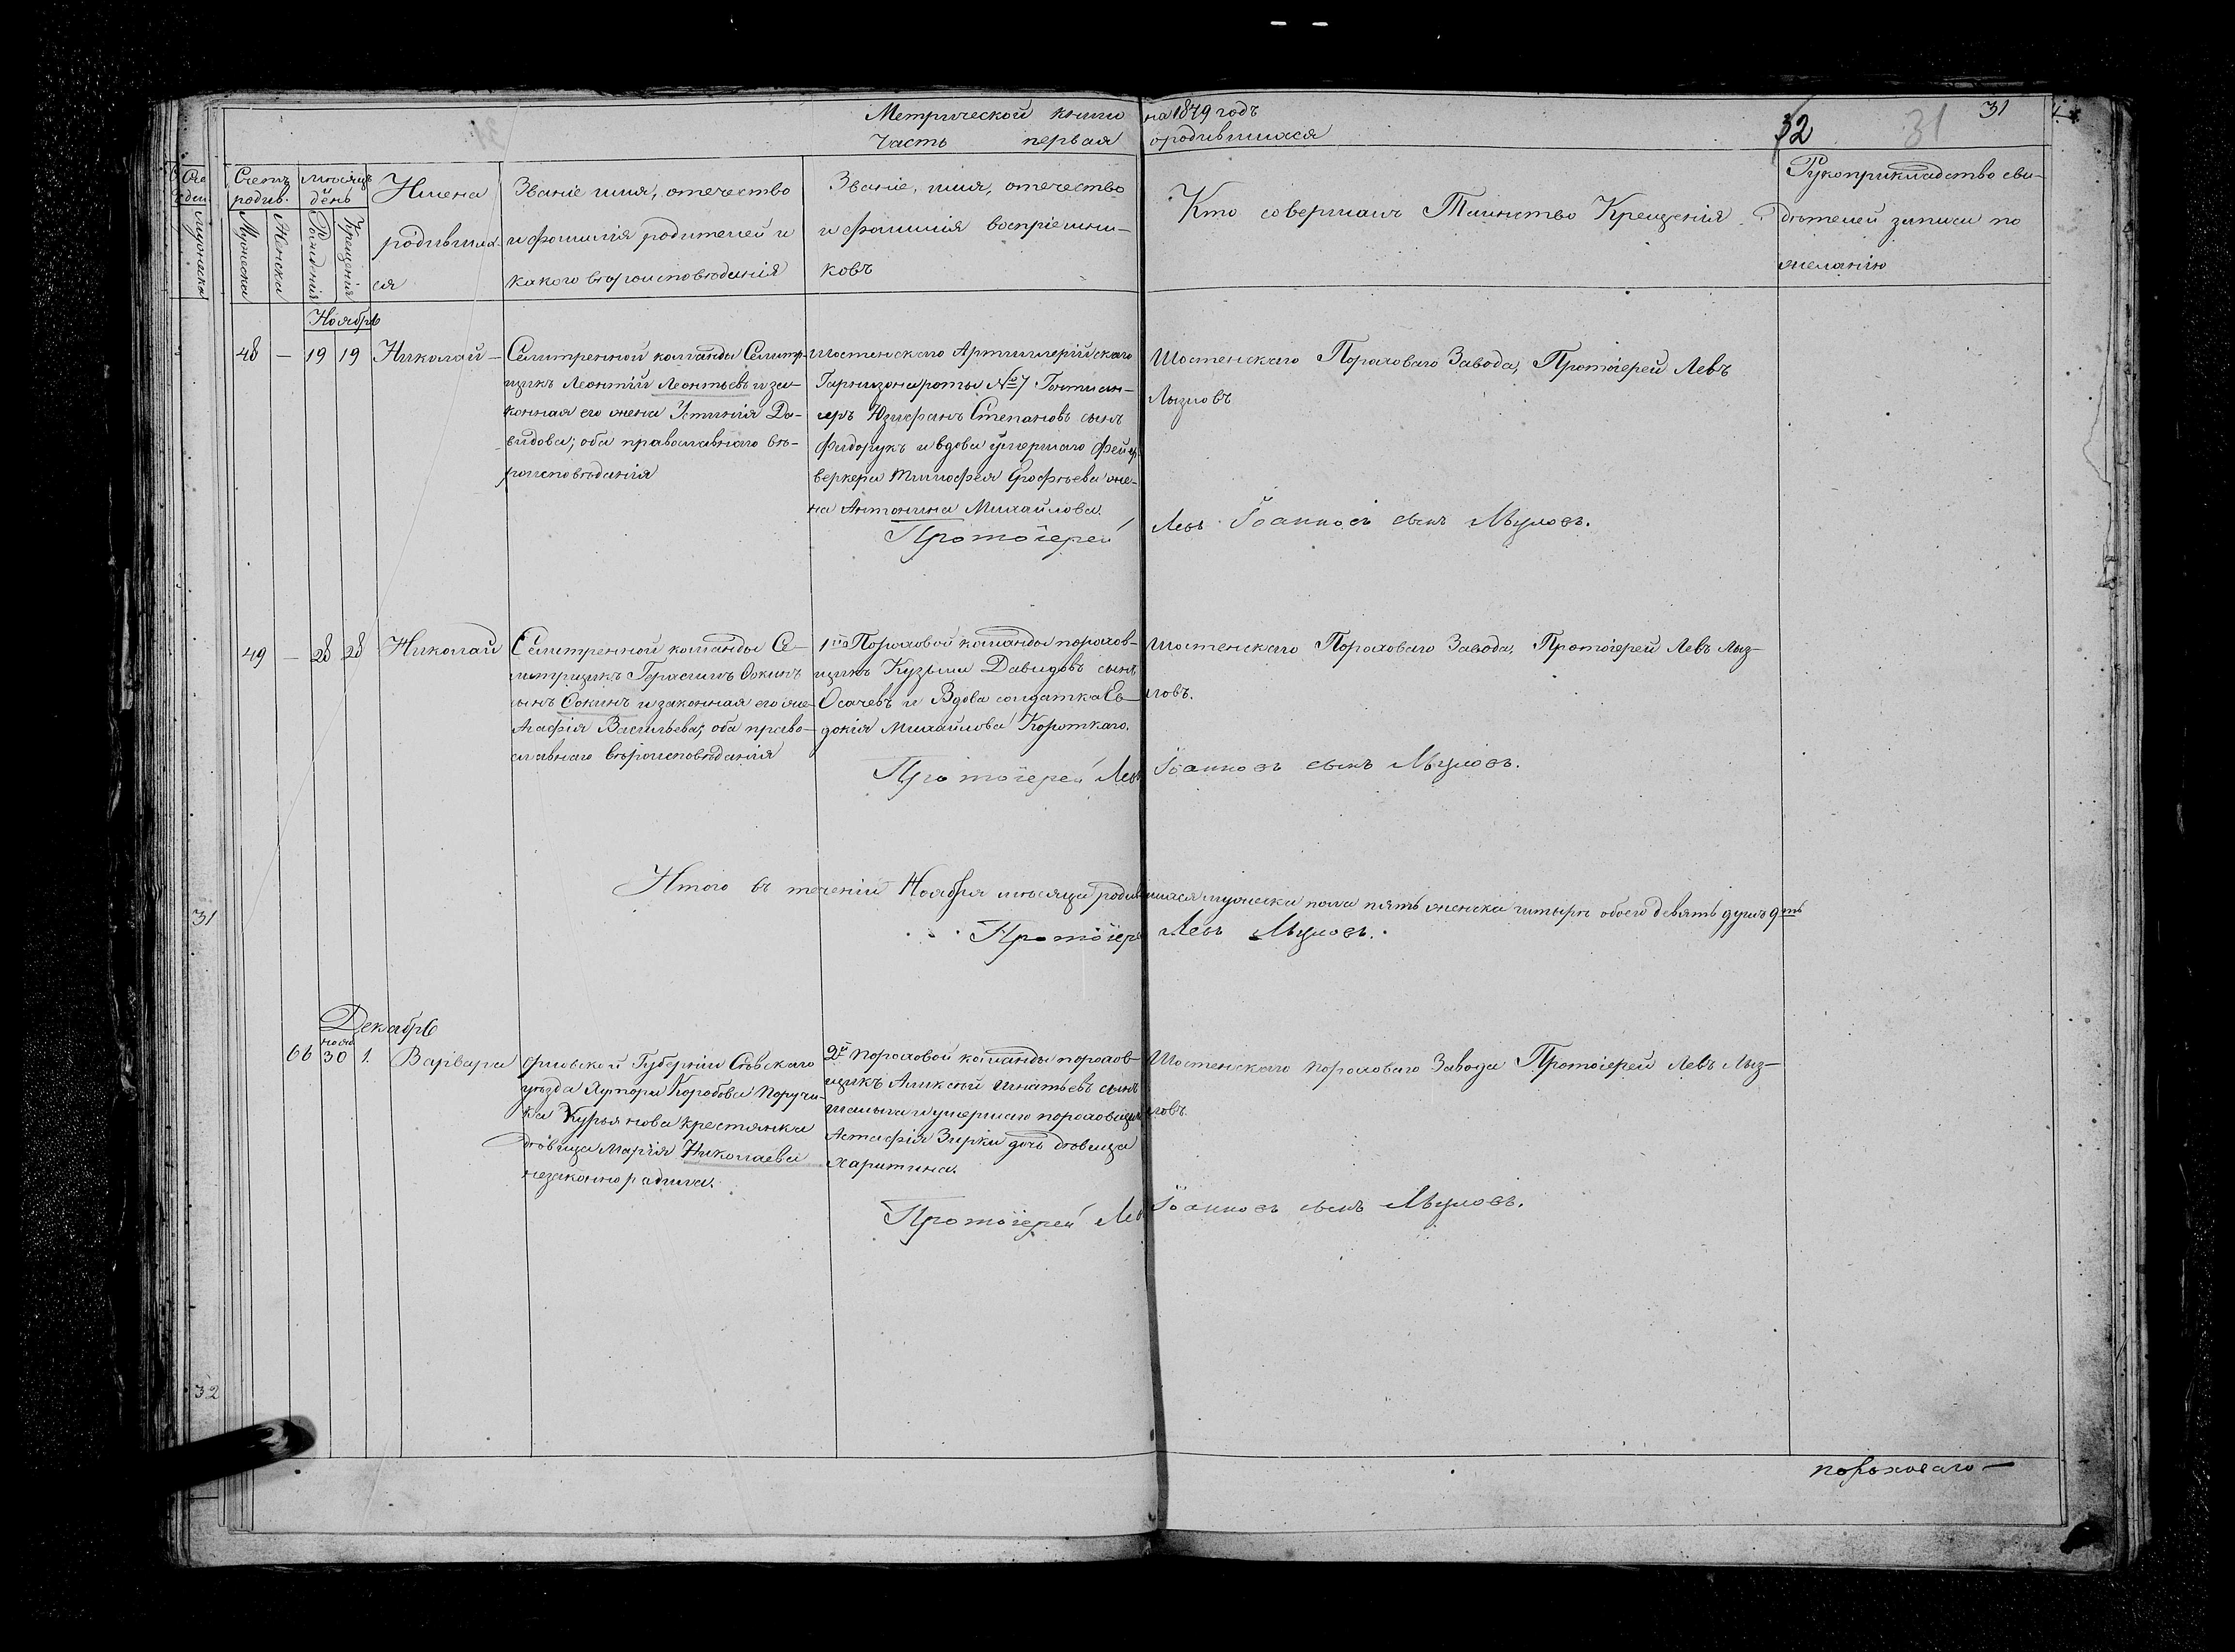 Метрической книги на 1849 годъ
Часть первая о родившихся
32 31 31
Счетъ родив.
Мужеска
Женска
мѣсяцъ и день
Рожденія
Крещенія
Имена
родивших-
ся
Званіе имя, отечество
и фамилія родителей и
какого вѣроисповѣданія
Званіе, имя, отечество
и фамилія воспріемни-
ковъ
Кто совершалъ Таинство Крещенія
Рукоприкладство сви-
дѣтелей записи по
желанію
Ноябрь
48 — 19 19 Николай —
Селитренной команды Селитр-
щикъ Леонтій Леонтьевъ и за-
конная его жена Устинія Да-
видова; оба православнаго вѣ-
роисповѣданія
Шостенскаго Артиллерійскаго
Гарнизона роты № 7 Гантлан-
геръ Степановъ сынъ
Фидорукъ и вдова умершаго Фейер-
веркера Тимофея Ерофѣева же-
на Антонина Михайлова.
Шостенскаго Пороховаго Завода, Протоіерей Левъ
Лызловъ
Протоіерей Левъ Іоанновъ сынъ Лызловъ.
49 — 28 28 Николай
Селитренной команды Се-
литрщикъ Герасимъ Фокинъ
сынъ Сокинъ и законная его же-
Агафія Васильева; оба право-
славнаго вѣроисповѣданія
1ой Пороховой команды порохов-
щикъ Кузьма Давидовъ сынъ
Осачевъ и Вдова солдатка Ев-
докія Михайлова Короткаго.
Шостенскаго Пороховаго Завода, Протоіерей Левъ Лыз-
ловъ.
Протоіерей Левъ Іоанновъ сынъ Лызловъ.
Итого въ теченіи Ноября мѣсяца родившихся мужеска пола пять женска четыре обоего девять душъ 9ть
Протоіерей Левъ Лызловъ.
31
Декабрь
нояб
66 30 1. Варвара
Орловской Губерніи Сѣвскаго
уѣзда Хутора Коробова Поручи-
ка Курьянова крестянка
дѣвица Марія Николаева
незаконно радила.
2й пороховой команды порохов-
щикъ Аликсѣй Игнатьевъ сынъ
и умершаго пороховщика
Астафія Зирки дочь дѣвица
Харитина.
Шостенскаго пороховаго Завода Протоіерей Левъ Лыз-
ловъ.
Протоіерей Левъ Іоанновъ сынъ Лызловъ.
32
пороховаго —